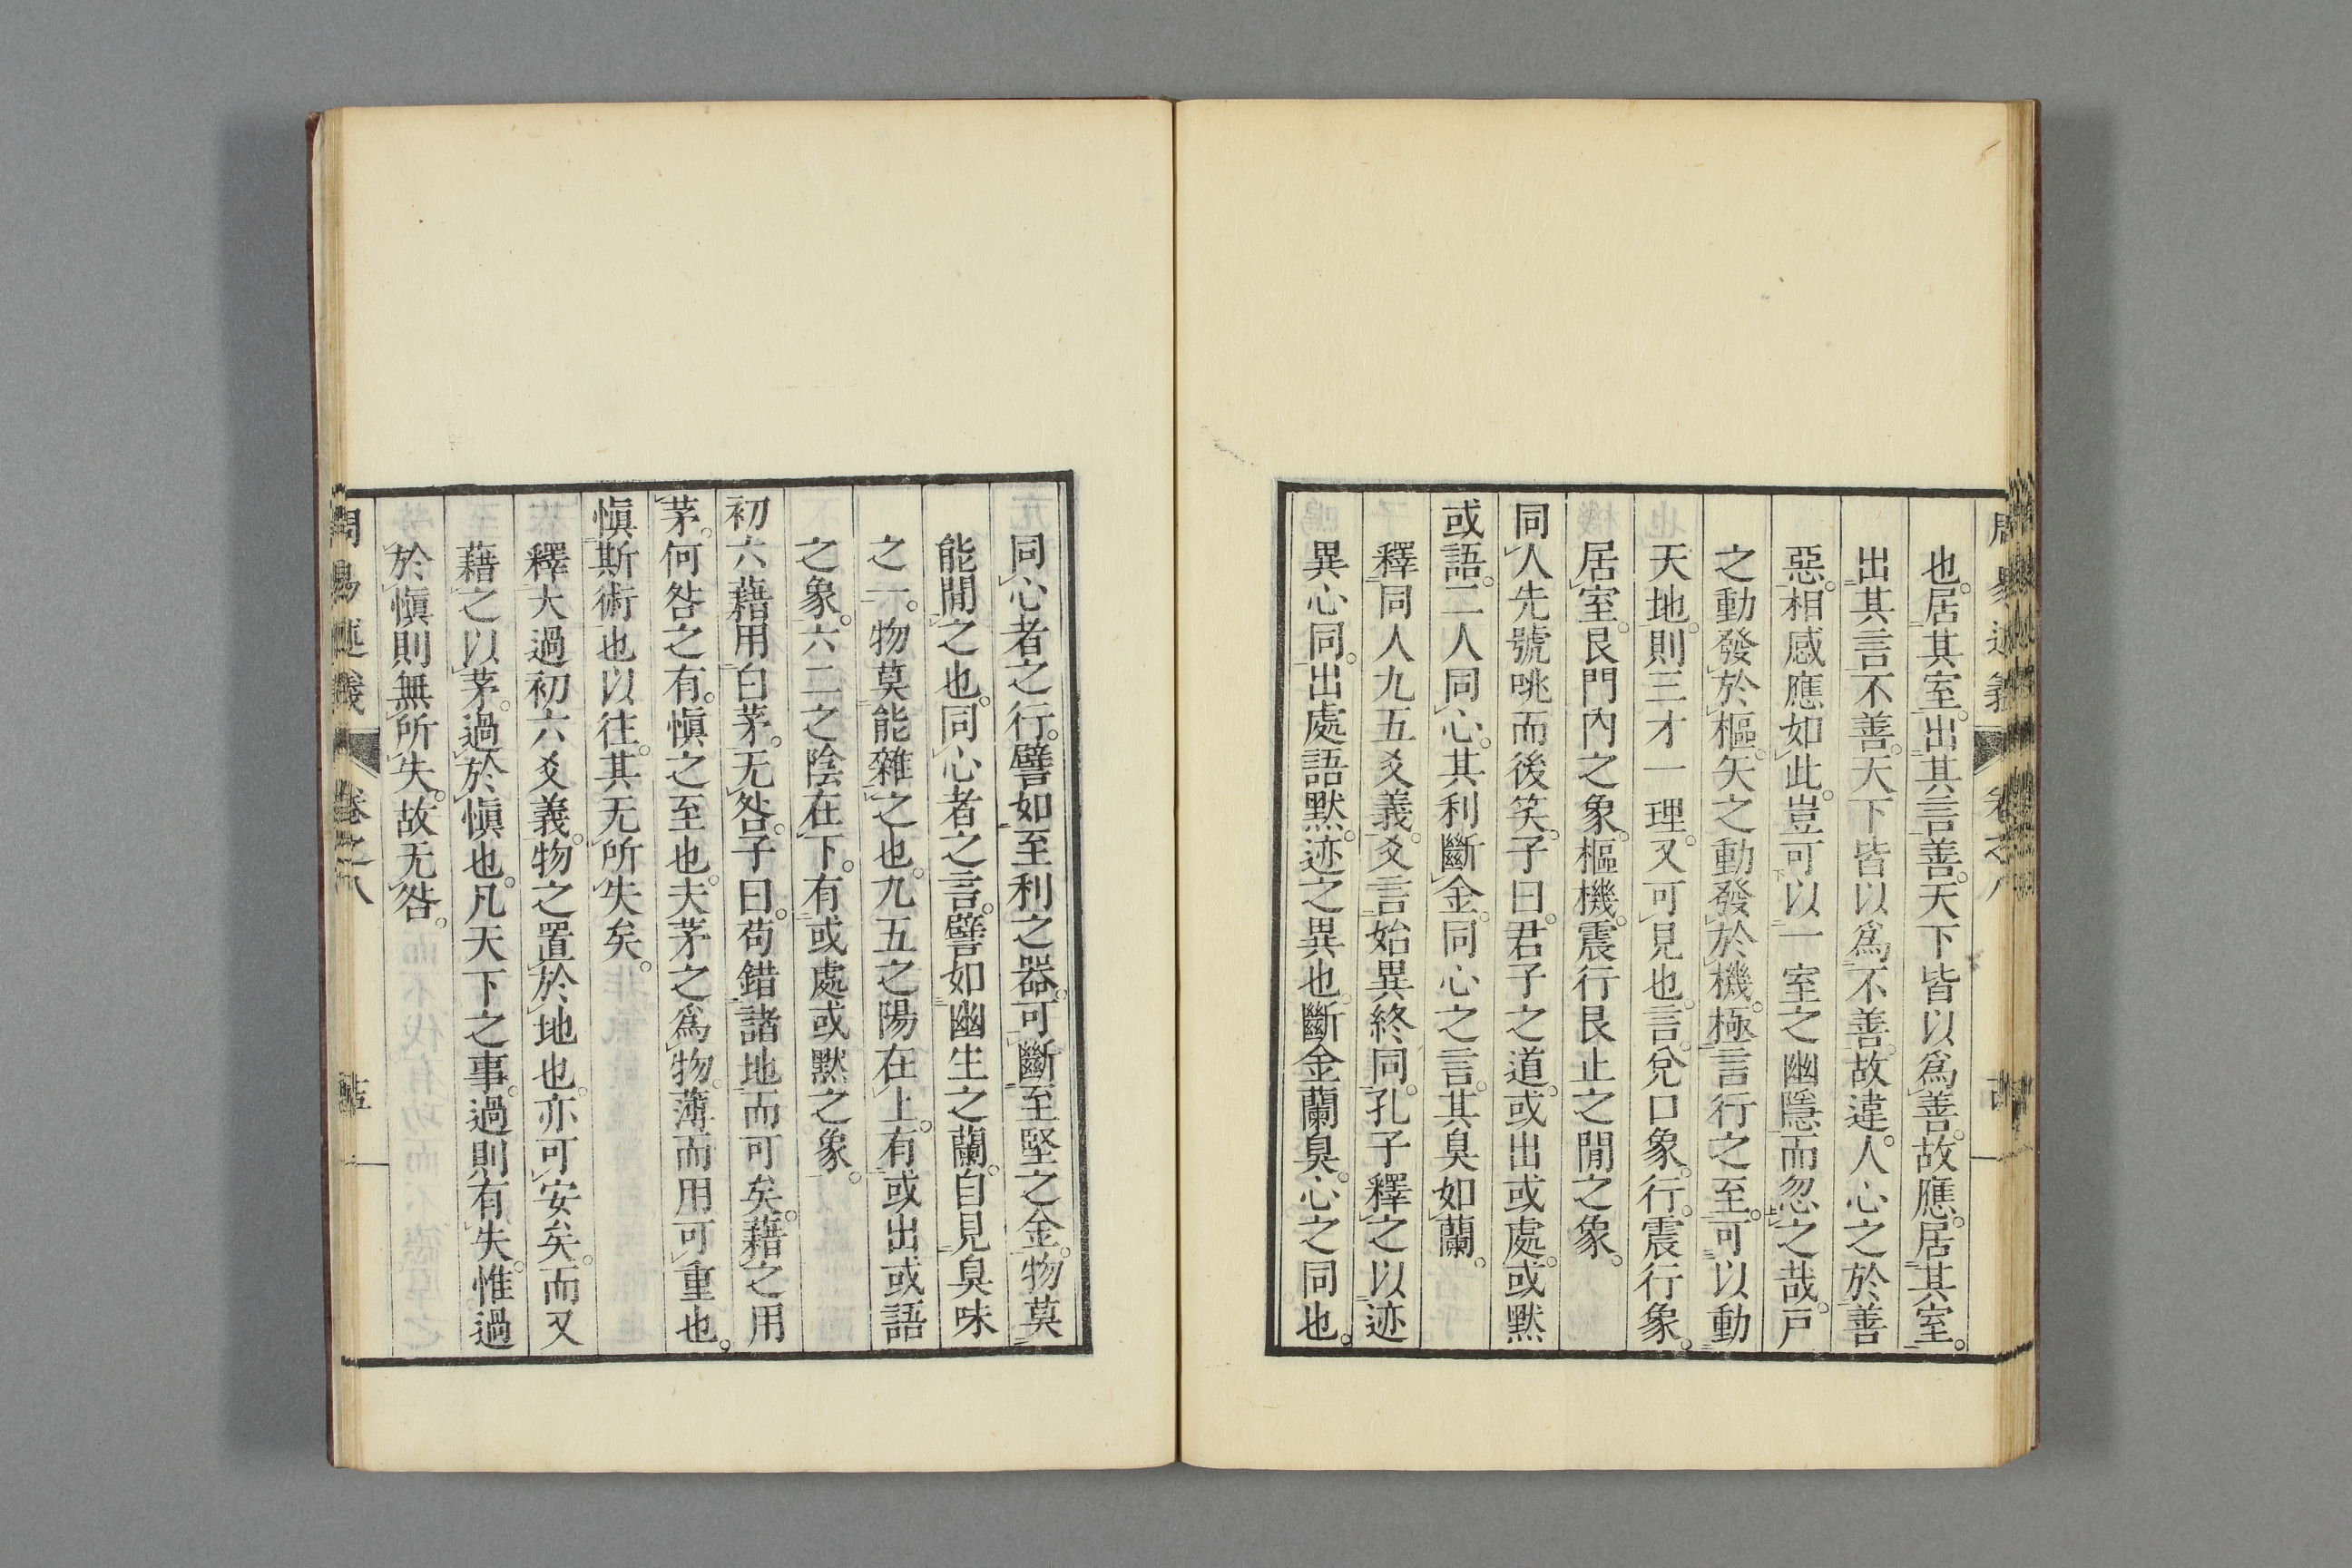 周易述義 卷之八
也。居其室。出其言善。天下皆以爲善。故應。居其室。
出其言不善。天下皆以爲不善。故違。人心之於善
惡。相感應如此。豈可以一室之幽隱而忽之哉。戸
之動發於樞。矢之動發於機。極言行之至。可以動
天地。則三才一理。又可見也。言。兌口象。行。震行象。
居室。艮門內之象。樞機。震行艮止之閒之象。
同人先號咷而後笑。子曰。君子之道。或出或處。或默
或語。二人同心。其利斷金。同心之言。其臭如蘭。
釋同人九五爻義。爻言始異終同。孔子釋之以迹
異心同。出處語默。迹之異也。斷金蘭臭。心之同也。
同心者之行。譬如至利之器。可斷至堅之金。物莫
能閒之也。同心者之言。譬如幽生之蘭。自見臭味
之一。物莫能雜之也。九五之陽在上。有或出或語
之象。六二之陰在下。有或處或默之象。
初六藉用白茅。无咎。子曰。苟錯諸地而可矣。藉之用
茅。何咎之有。愼之至也。夫茅之爲物。薄而用可重也。
愼斯術也以往。其无所失矣。
釋大過初六爻義。物之置於地也。亦可安矣。而又
藉之以茅。過於愼也。凡天下之事。過則有失。惟過
於愼則無所失。故无咎。
周易述義 卷之八